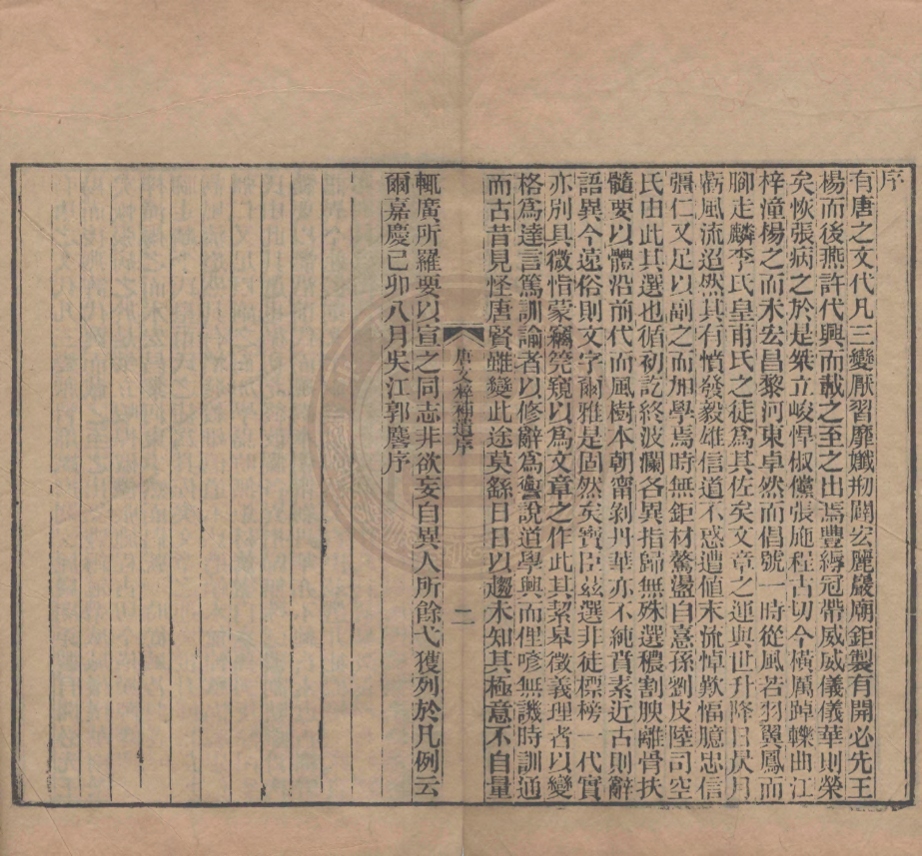 序
有唐之文代凡三變厭習靡孅刱闢宏麗巖廟鉅製有開必先王
楊而後燕許代興而載之至之出焉豐縟冠帶威威儀儀華則榮
矣恢張病之於是桀立峻悍俶儻張施程古切今橫厲踔轢曲江
梓潼楊之而未宏昌黎河東卓然而倡號一時從風若羽翼鳳而
腳走麟李氏皇甫氏之徒爲其佐矣文章之運與世升降日昃月
虧風流迢然其有憤發毅雄信道不惑遭値末流悼歎愊臆忠信
彊仁又足以副之而加學焉時無鉅材驁盪自憙孫劉皮陸司空
氏由此其選也循初訖終波瀾各異指歸無殊選穠割腴離骨扶
髓要以體沿前代而風樹本朝甯剝丹華亦不純賁素近古則辭
語異今遠俗則文字爾雅是固然矣寶臣茲選非徒標榜一代實
亦別具微恉蒙竊筦窺以爲文章之作此其絜皋徵義理者以變
格爲達言篤訓諭者以修辭爲轡說道學興而俚喭無譏時訓通
而古昔見怪唐賢雖變此途莫繇日日以趨未知其極意不自量
唐文粹補遺序
二
輒廣所羅要以宣之同志非欲妄自異人所餘弋獲列於凡例云
爾嘉慶己卯八月吳江郭麐序